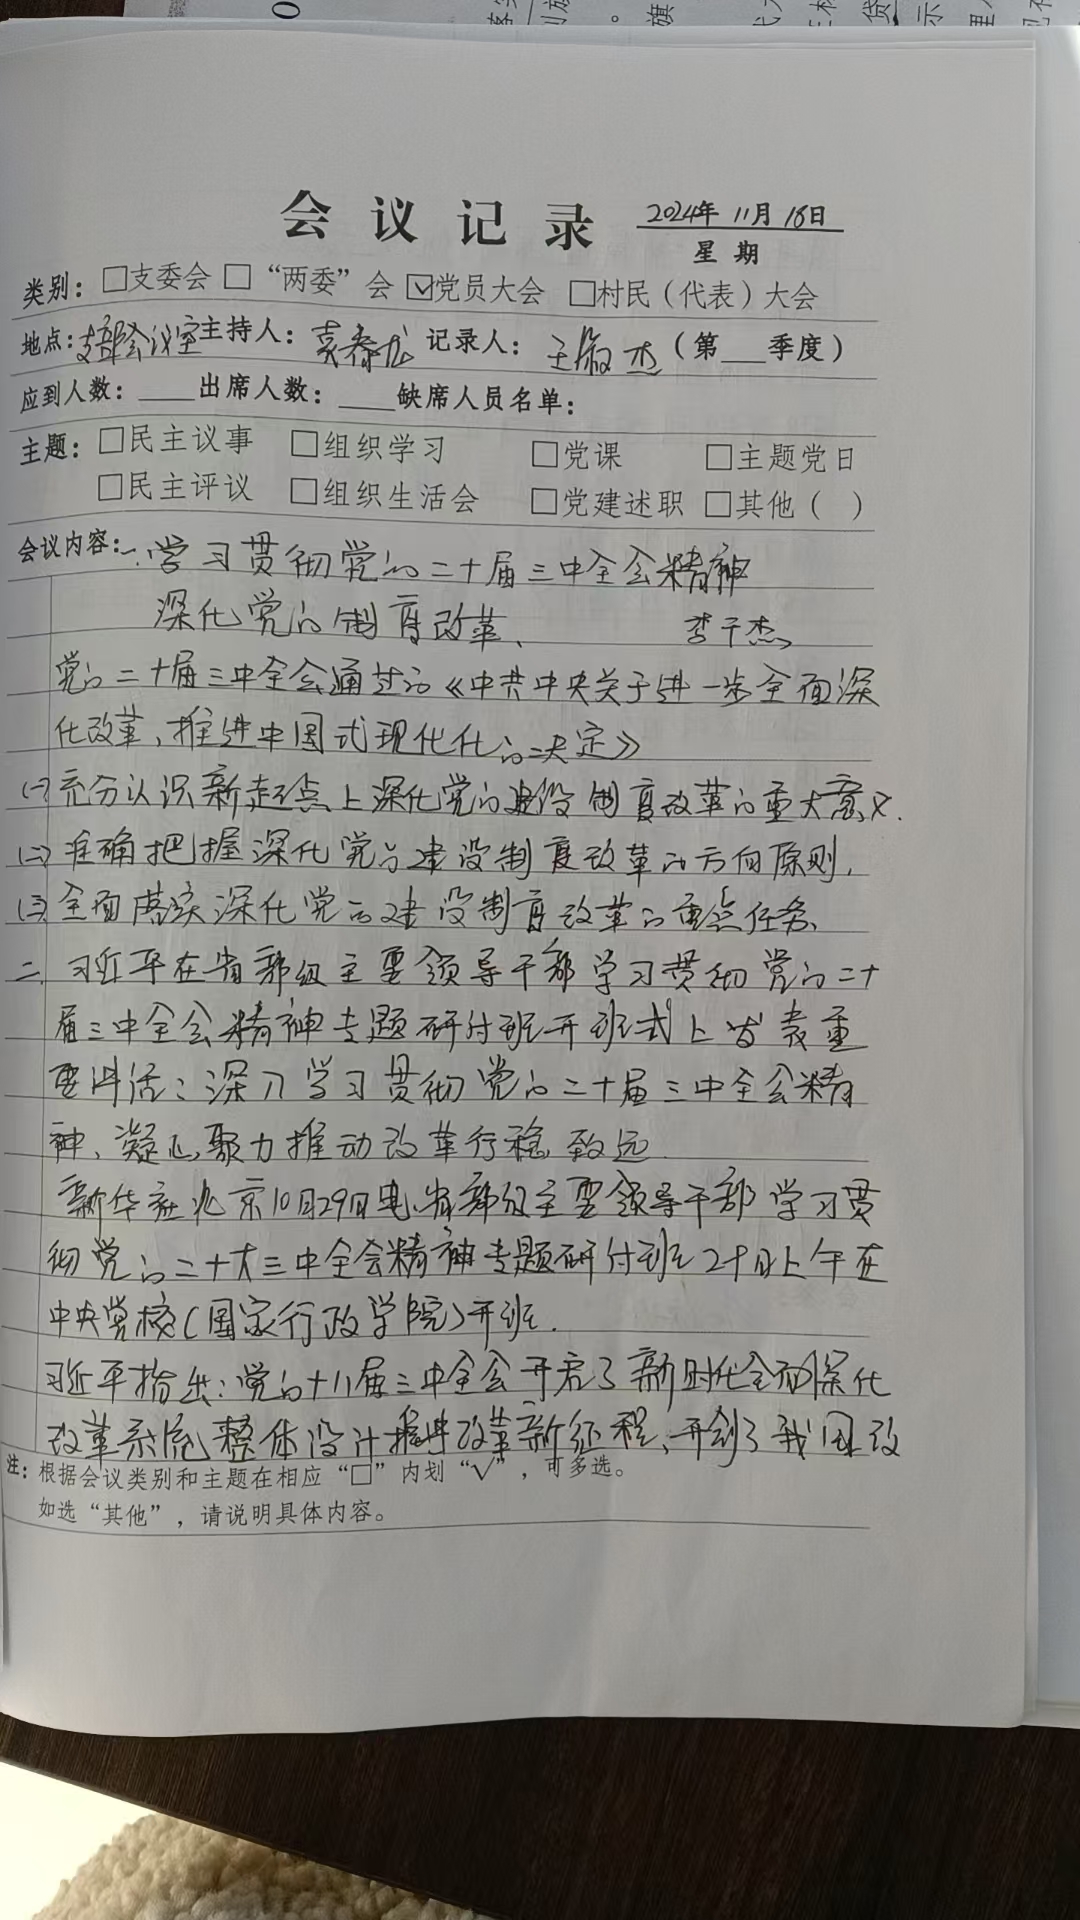 会议记录 2024年11月18日
星期
类别：□支委会 □“两委”会 ☑党员大会 □村民（代表）大会
地点：支部会议室 主持人：袁春龙 记录人：王俊杰（第___季度）
应到人数：____出席人数：____缺席人员名单：
主题：□民主议事 □组织学习 □党课 □主题党日
□民主评议 □组织生活会 □党建述职 □其他（ ）
会议内容：一.学习贯彻党的二十届三中全会精神
深化党的制度改革、 李干杰
党的二十届三中全会通过的《中共中央关于进一步全面深
化改革、推进中国式现代化的决定》
(一)充分认识新起点上深化党的建设制度改革的重大意义.
(二)准确把握深化党的建设制度改革的方向原则.
(三)全面落实深化党的建设制度改革的重点任务、
二、习近平在省部级主要领导干部学习贯彻党的二十
届三中全会精神专题研讨班开班式上发表重
要讲话：深入学习贯彻党的二十届三中全会精
神、凝心聚力推动改革行稳致远
新华社北京10月29日电.省部级主要领导干部学习贯
彻党的二十大三中全会精神专题研讨班29日上午在
中央党校(国家行政学院)开班.
习近平指出：党的十八届三中全会开启了新时代全面深化
改革系统整体设计推进改革新征程、开创了我国改
注：根据会议类别和主题在相应“□”内划“√”，可多选。
如选“其他”，请说明具体内容。